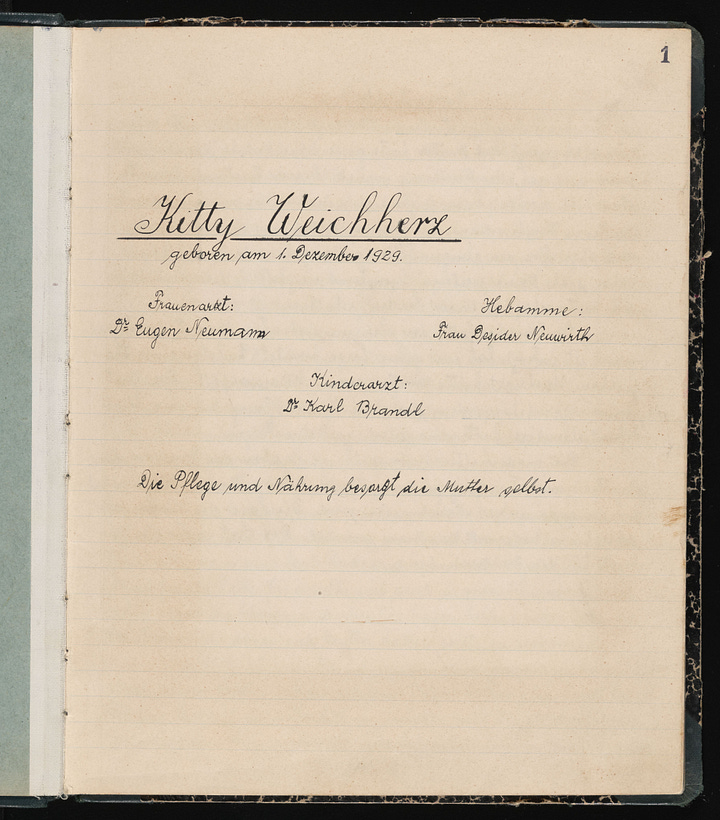 1
Kitty Weichherz
geboren am 1. Dezember 1929.
Frauenarzt:
Dr Eugen Neumann
Hebamme:
Frau Desider Neuwirth
Kinderarzt:
Dr Karl Brandl
Die Pflege und Nährung besorgt die Mutter selbst.